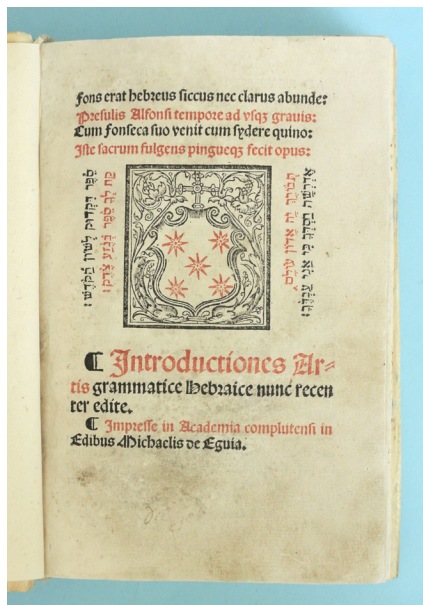 fons erat hebreus siccus nec clarus abunde:
Presulis Alfonsi tempore ad vsqꝫ grauis:
Cum Fonseca suo venit cum sydere quino:
Iste sacrum fulgens pingueqꝫ fecit opus:
ספר דקדוק לשון הקדש:
¶ Introductiones Ar-
tis grammatice Hebraice nunc recen
ter edite.
¶ Impresse in Academia complutensi in
Edibus Michaelis de Eguia.